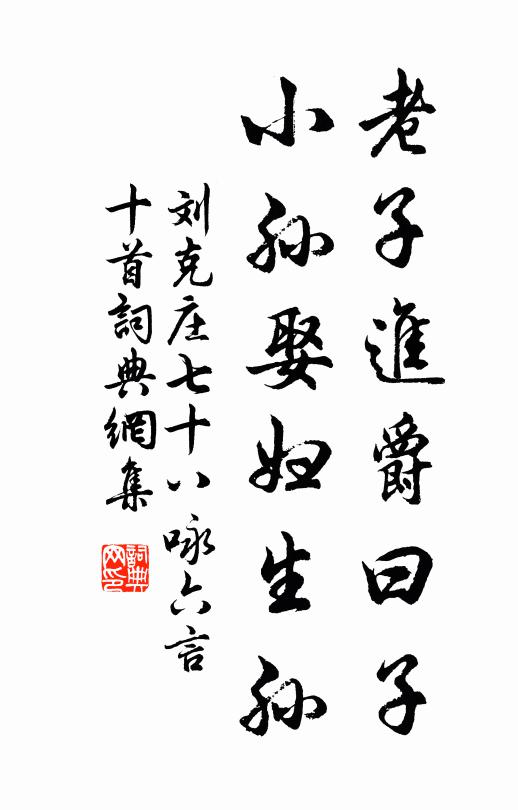 老子進爵曰子
小孙娶妇生孙
刘克庄七十八咏六言
十首詞典網集
詞典网印